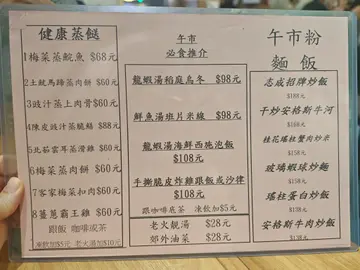 健康蒸餸
1梅菜蒸鯇魚 $68元
2土魷馬蹄蒸肉餅 $60元
3豉汁蒸上肉黄$60元
4陳皮豉汁蒸龍鯏 $88元
5北菇雲耳蒸滑雞 $60元
6梅菜蒸肉餅 $60元
7客家梅菜扣肉$60元
8蕃蔥霸王雞 $60元
跟飯 咖啡或茶
凍飲加$5元 老火湯加$10元
午市
必食推介
龍蝦湯稻庭烏冬 $98元
鮮魚湯班片米線 $98元
龍蝦湯海鮮西施泡飯
$108元
手撕脆皮炸雞跟飯或沙律
$108元
跟咖啡底茶 凍飲加$5元
老火靚湯 $28元
郊外油菜 $28元
午市粉
麵 飯
志成招牌炒飯
干炒安格斯牛河
桂花瑤柱蟹肉炒米
$158元
玻璃蝦球炒麵
瑤柱蛋白炒飯
安格斯牛肉炒飯